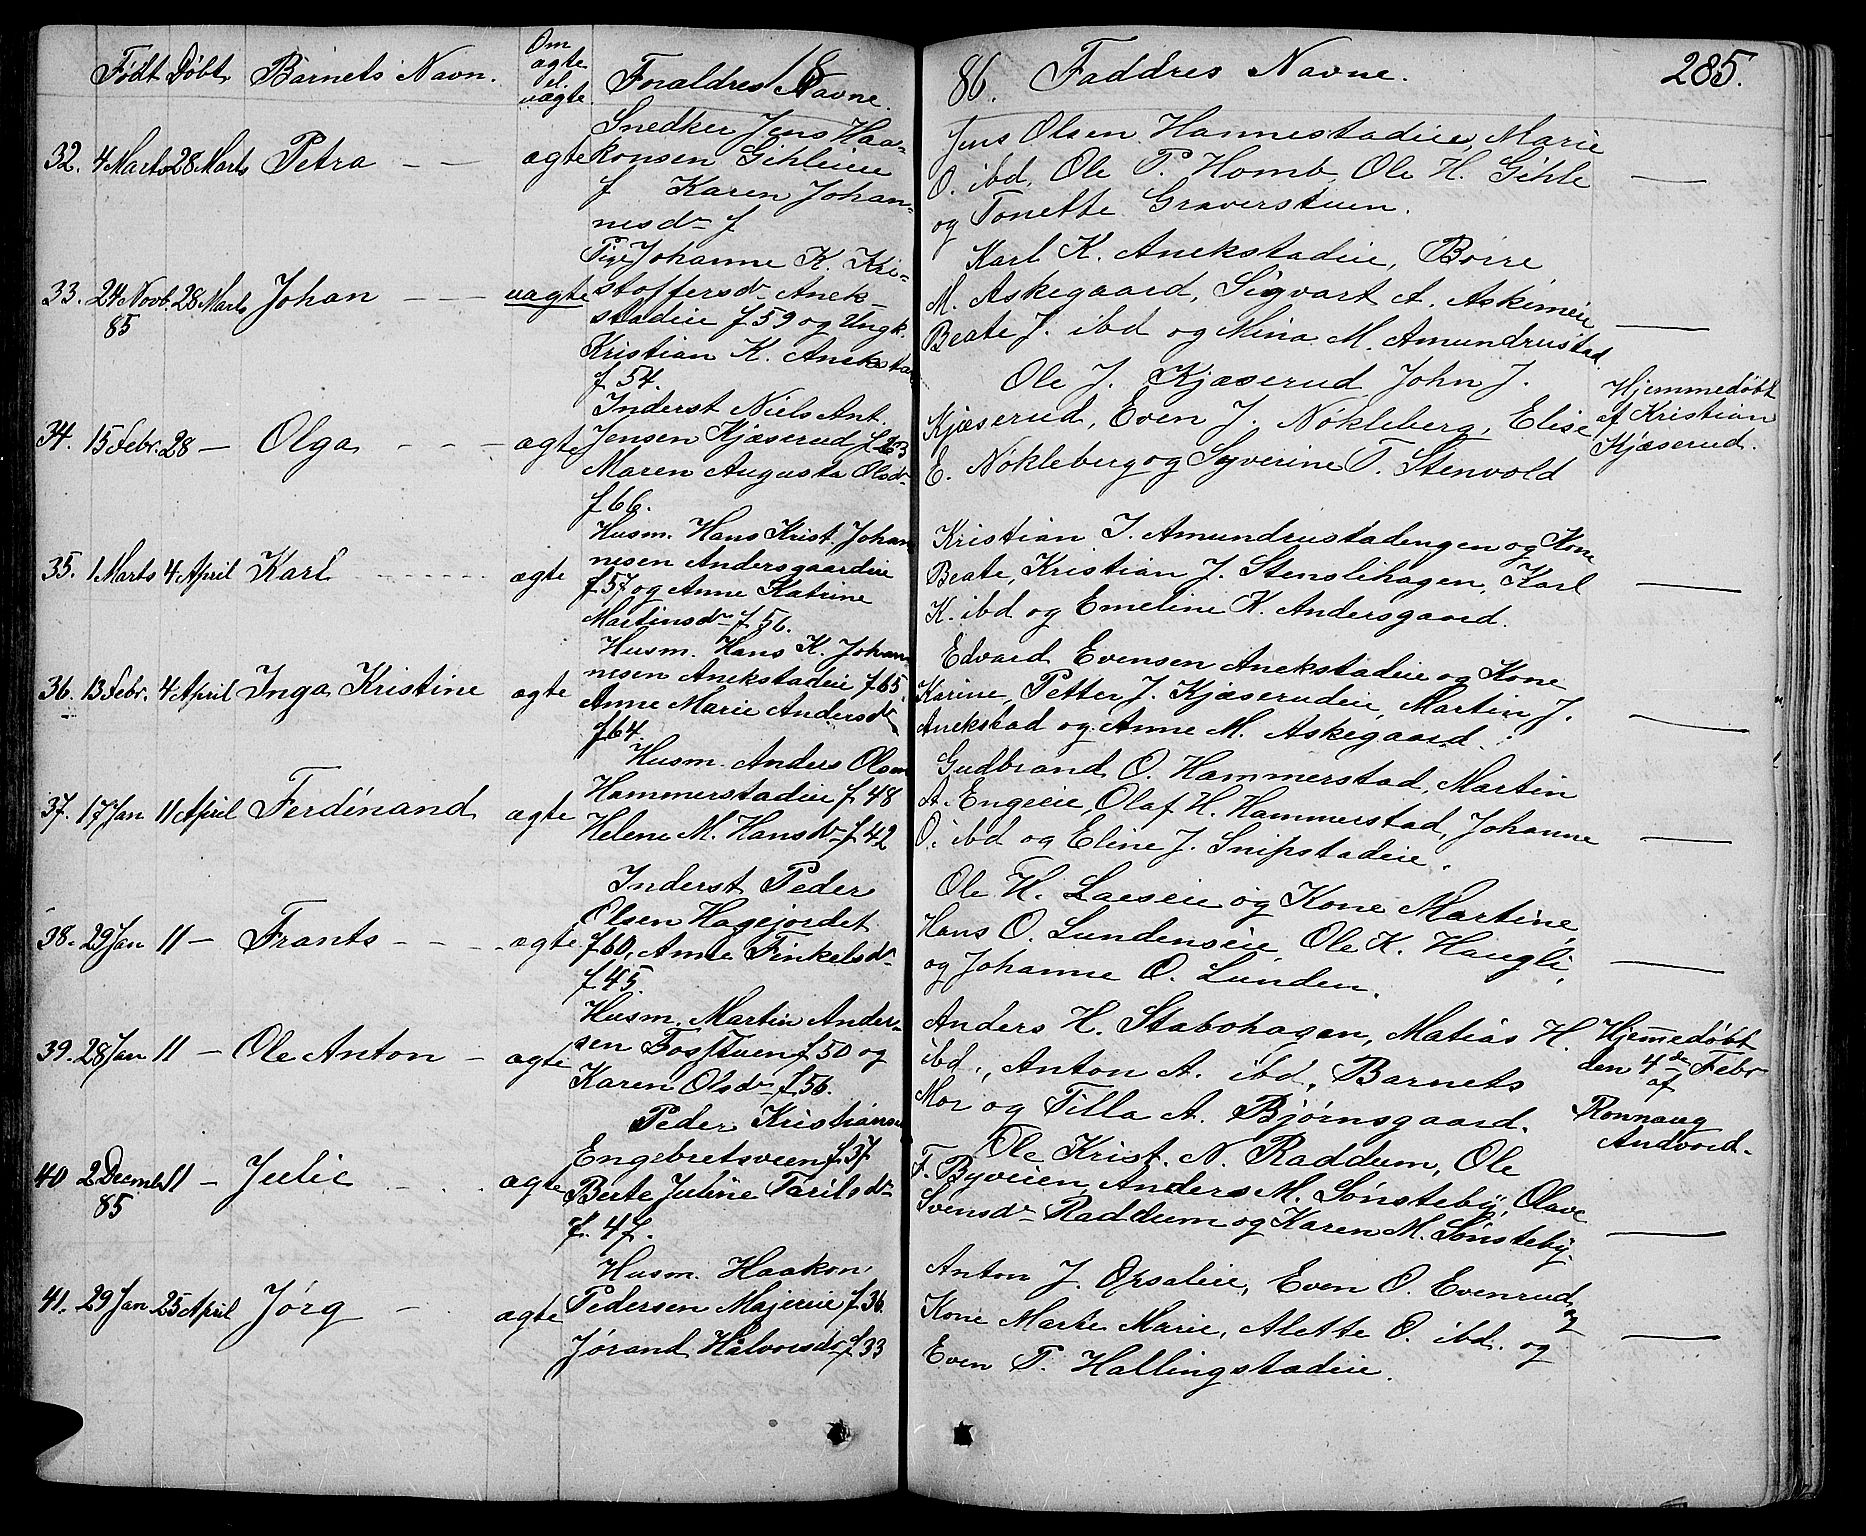 Født Døbt Barnets Navn. Om ægte el. uægte. Forældres Navne. 18
86. Faddres Navne. 285.
32. 4 Marts 28 Marts Petra — — ægte
Snedker Jens Haa-
konsen Gihleeie
f Karen Johan-
nesdr f
Jens Olsen Hannestadeie, Marie
O. ibd, Ole P. Homb, Ole H. Gihle —
og Tonette Graverstuen.
33. 24 Novb. 85 28 Marts Johan — — — uægte
Pige Johanne K. Kri-
stoffersdr Anek-
stadeie f 59 og Ungk.
Kristian K. Anekstad
f 54.
Karl K. Anekstadeie, Børre
M. Askegaard, Sigvart A. Askimeie
Beate J. ibd og Mina M. Amundrustad. —
34. 15 Febr. 28 — Olga — — — ægte
Inderst Niels Ant.
Jensen Kjæserud f 63
Maren Augusta Olsdr
f 66.
Ole J. Kjæserud John J.
Kjæserud, Even J. Nøkleberg, Elise
E. Nøkleberg og Syverine T. Stenvold
Hjemmedøbt
af Kristian
Kjæserud.
35. 1 Marts 4 April Karl - - - - - - ægte
Husm. Hans Krist. Johan
nesen Andersgaardeie
f 57 og Anne Katrine
Martinsdr f 56.
Kristian I. Amundrustadengen og Kone
Beate, Kristian J. Stenslihagen, Karl —
K. ibd og Emeline K. Andersgaard.
36. 13 Febr. 4 April Inga Kristine ægte
Husm. Hans K. Johan
nesen Anekstadeie f 65.
Anne Marie Andersdr
f 64.
Edvard Evensen Anekstadeie og Kone
Karine, Petter J. Kjæserudeie, Martin J. —
Anekstad og Anne M. Askegaard.
37. 17 Jan 11 April Ferdinand ægte
Husm. Anders Olsen
Hammerstadeie f 48
Helene M. Hansdr f 42
Gudbrand O. Hammerstad, Martin
A. Engeeie, Olaf H. Hammerstad, Johanne
O. ibd og Eline J. Snipstadeie. —
38. 29 Jan 11 — Frants - - - ægte
Inderst Peder
Olsen Hagejordet
f 60, Anne Tinkelsdr
f 45.
Ole H. Laeseie og Kone Martine,
Hans O. Lundenseie, Ole K. Haugli,
og Johanne O. Lunden. —
39. 28 Jan 11 — Ole Anton — ægte
Husm. Martin Ander-
sen Fosstuen f 50 og
Karen Olsdr f 56.
Anders H. Stabohagen, Matias H.
ibd., Anton A. ibd, Barnets
Mor og Tilla A. Bjørnsgaard.
Hjemmedøbt
den 4de Febr
af
Ronnaug
Andvord.
40 2 Decemb 85 11 — Julie - - - ægte
Peder Kristiansen
Engebretsveen f. 37
Berte Juline Tarilsdr
f. 47.
Ole Krist. N. Raddum, Ole
F. Byveien, Anders M. Sønsteby, Olave
Svensdr Raddum og Karen M. Sønsteby. —
41. 29 Jan 25 April Jørg — ægte
Husm. Haakon
Pedersen Majereie f 36.
Jørand Halvorsdr f 33
Anton J. Opsaleie, Even O. Evenrud og
Kone Marte Marie, Alette O. ibd. og
Even T. Hallingstadeie. —